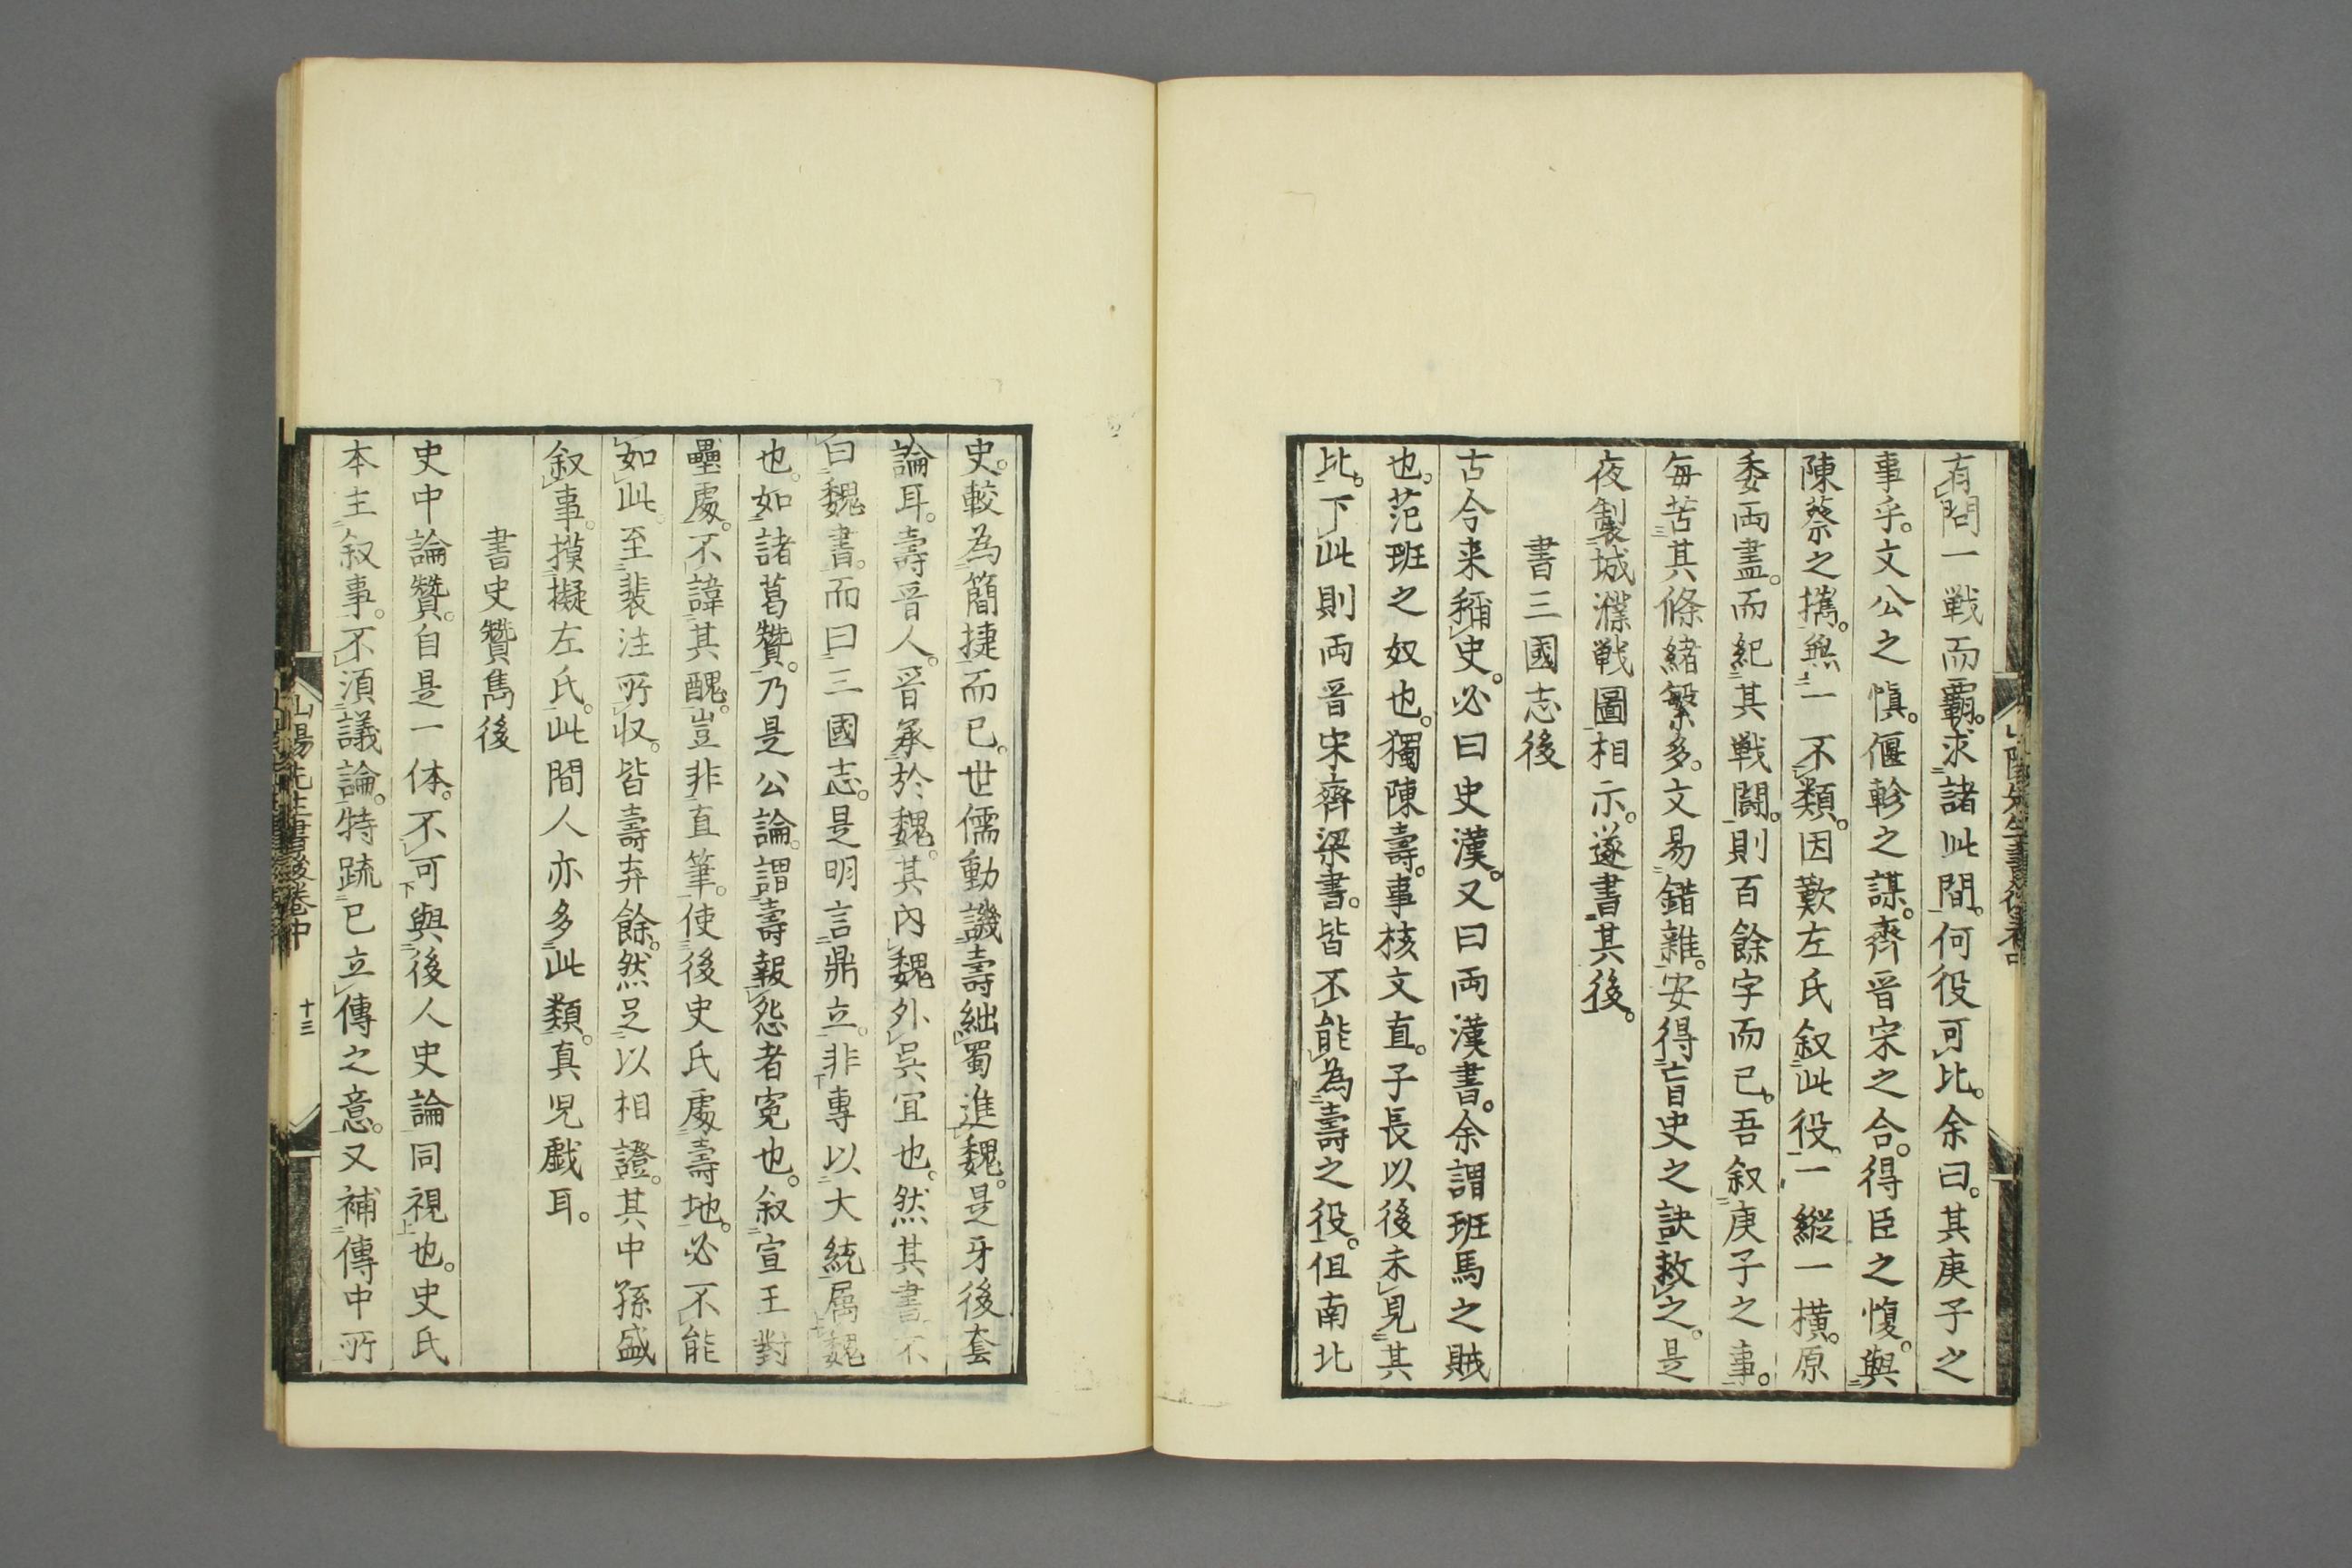 有問一戦而覇。求諸此間。何役可比。余曰。其庚子之
事乎。文公之愼。偃軫之謀。齊晋宋之合。得臣之愎。與
陳蔡之攜。無一不類。因歎左氏叙此役。一縦一横。原
委両盡。而紀其戦闘。則百餘字而已。吾叙庚子之事。
毎苦其條緒繁多。文易錯雜。安得盲史之訣救之。是
夜製城濮戦圖相示。遂書其後。
書三國志後
古今来稱史。必曰史漢。又曰両漢書。余謂班馬之賊
也。范班之奴也。獨陳壽。事核文直。子長以後未見其
比。下此則両晋宋齊梁書。皆不能為壽之役。但南北
史。較為簡捷而已。世儒動譏壽絀蜀進魏。是牙後套
論耳。壽晋人。晋承於魏。其内魏外吳宜也。然其書不
曰魏書。而曰三國志。是明言鼎立。非専以大統属魏
也。如諸葛贊。乃是公論。謂壽報怨者寃也。叙宣王對
壘處。不諱其醜。豈非直筆。使後史氏處壽地。必不能
如此。至裴注所収。皆壽弃餘。然足以相證。其中孫盛
叙事。摸擬左氏。此間人亦多此類。真児戯耳。
書史贊雋後
史中論贊。自是一体。不可與後人史論同視也。史氏
本主叙事。不須議論。特䟽已立傳之意。又補傳中所
山陽先生書後卷中
十三